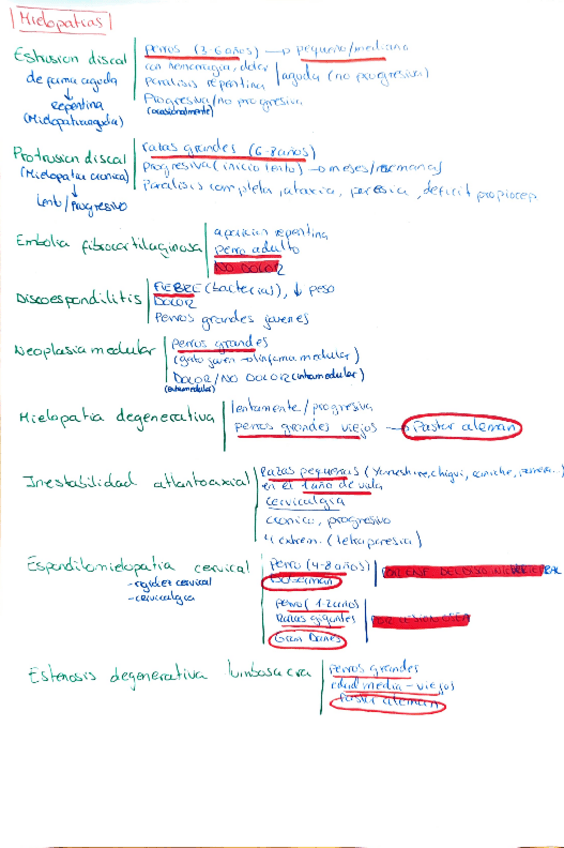 Mielopatias
Estrusion discal
de forma aguda
↓
repentina
(Mielopatia aguda)
perros (3-6 años) → pequeño/mediano
con hemorragia, dolor
Paralisis repentina
aguda (no progresiva)
Progresiva/no progresiva
(ocasionalmente)
Protrusion discal
(Mielopatia cronica)
↓
lento/progresivo
razas grandes (6-8 años)
Progresiva (inicio lento) → meses/semanas
Paralisis completa, ataxia, paresia, deficit propiocep
Embolia fibrocartilaginosa
aparicion repentina
perro adulto
NO DOLOR
Discoespondilitis
FIEBRE (bacterias), ↓ peso
DOLOR
Perros grandes jovenes
Neoplasia medular
perros grandes
(gato joven → linfoma medular)
DOLOR/NO DOLOR (intramedular)
(extramedular)
Mielopatia degenerativa
lentamente/progresiva
perros grandes viejos → Pastor aleman
Inestabilidad atlantoaxial
Razas pequeñas (Yorkshire, chigui, caniche, pomera..)
en el 1 año de vida
cerviculgia
cronico, progresivo
4 extrem. (tetraparesia)
Espondilomielopatia cervical
- rigidez cervical
- cerviculgia
Perro (4-8 años)
Doberman
Perro (1-2 años
Razas gigantes
Gran Danés
POR LESION OSEA
Estenosis degenerativa lumbosacra
Perros grandes
edad media - viejos
Pastor aleman